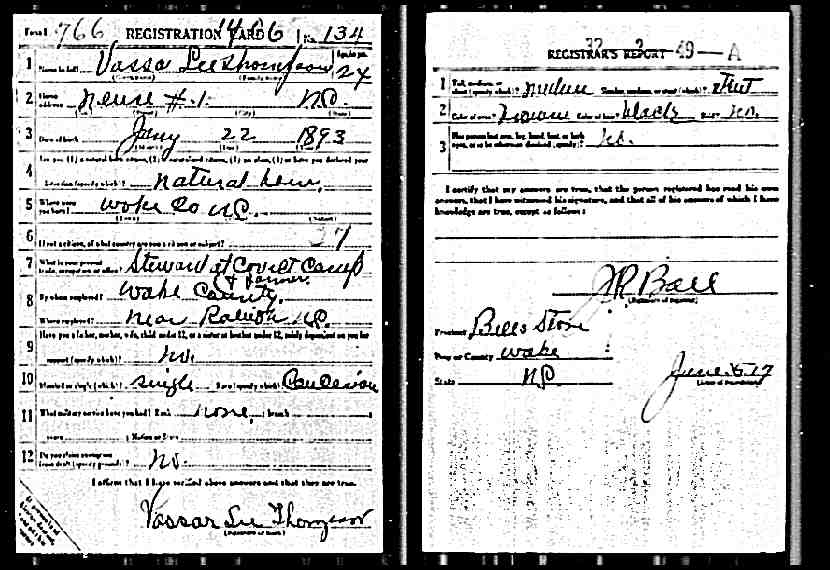 Form 1 766 REGISTRATION CARD 1466 No. 134
1 Name in full Vassar Lee Thompson Age, in yrs. 24
(Given name) (Family name)
2 Home address Neuse #1. N.C.
(No.) (Street) (City) (State)
3 Date of birth Jany 22 1893
(Month) (Day) (Year)
4 Are you (1) a natural born citizen, (2) a naturalized citizen, (3) an alien, (4) or have you declared your
intention (specify which)? natural born,
5 Where were you born? Wake Co N.C.
(Town) (State) (Nation)
6 If not a citizen, of what country are you a citizen or subject? 37
7 What is your present trade, occupation or office? Steward at Convict Camp
& farmer.
8 By whom employed? Wake County.
Where employed? Near Raleigh N.C.
9 Have you a father, mother, wife, child under 12, or a sister or brother under 12, solely dependent on you for
support (specify which)? No.
10 Married or single (which)? single Race (specify which)? Caucasian
11 What military service have you had? Rank none, branch
years Nation or State
12 Do you claim exemption from draft (specify grounds)? No.
I affirm that I have verified above answers and that they are true.
Vassar Lee Thompson
(Signature or mark)
REGISTRAR'S REPORT 32 2 49-A
1 Tall, medium, or short (specify which)? medium Slender, medium, or stout (which)? Stout
2 Color of eyes? Brown Color of hair? black Bald? No.
3 Has person lost arm, leg, hand, foot, or both
eyes, or is he otherwise disabled (specify)? No.
I certify that my answers are true, that the person registered has read his own
answers, that I have witnessed his signature, and that all of his answers of which I have
knowledge are true, except as follows:
J R Ball
(Signature of registrar)
Precinct Bells Store
City or County Wake
State N.C.
June 5-17
(Date of registration)